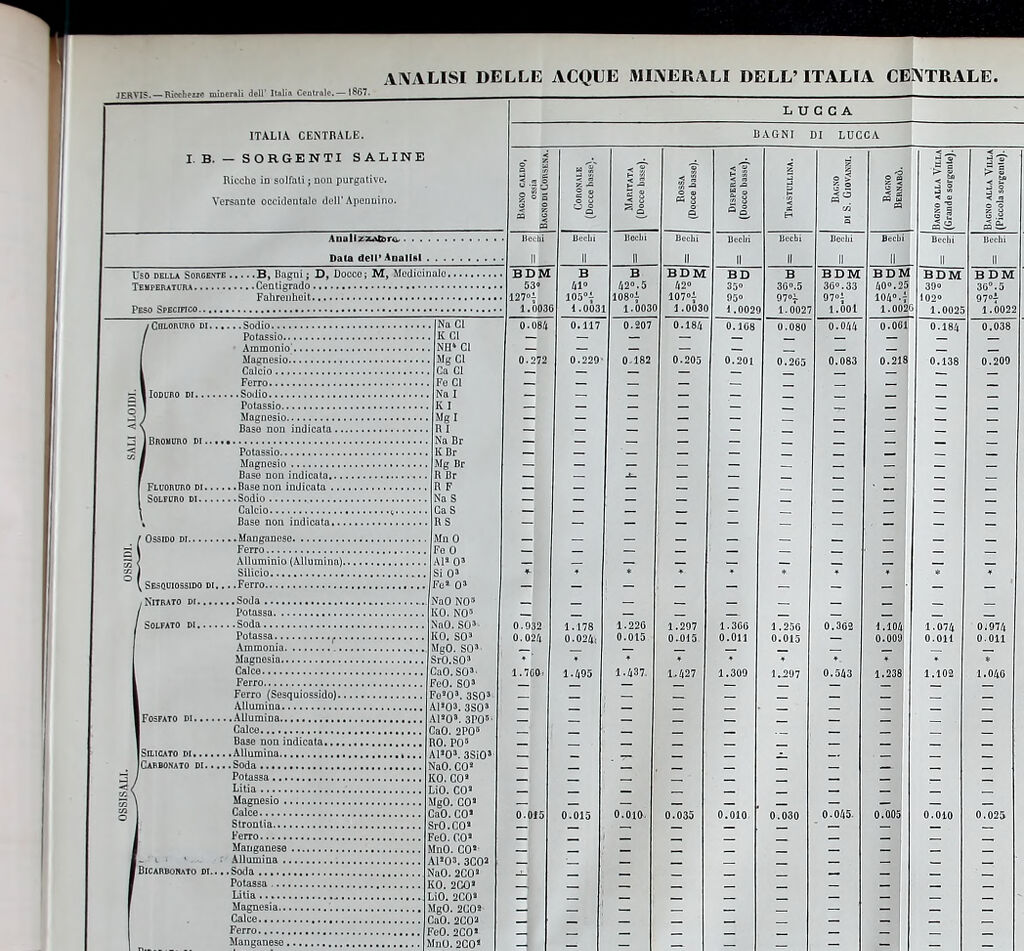 ANALISI DELLE ACQUE MINERALI DELL' ITALIA CENTRALE.
JERVIS.—Ricchezze minerali dell' Italia Centrale.—1867.
LUCCA
BAGNI DI LUCCA
ITALIA CENTRALE.
I. B. — SORGENTI SALINE
Ricche in solfati; non purgative.
Versante occidentale dell' Apennino.
BAGNO CALDO, ossia BAGNO DI CORSENA.
CORONALE (Docce basse).
MARITATA (Docce basse).
ROSSA (Docce basse).
DISPERATA (Docce basse).
TRASTULLINA.
BAGNO DI S. GIOVANNI.
BAGNO BERNABÒ.
BAGNO ALLA VILLA (Grande sorgente).
BAGNO ALLA VILLA (Piccola sorgente).
Analizzatore. Bechi Bechi Bechi Bechi Bechi Bechi Bechi Bechi Bechi Bechi
Data dell' Analisi
USO DELLA SORGENTE.....B, Bagni; D, Docce; M, Medicinale. BDM B B BDM BD B BDM BDM BDM BDM
TEMPERATURA.....Centigrado 53° 41° 42°.5 42° 35° 36°.5 36°.33 40°.25 39° 36°.5
Fahrenheit 127°½ 105°½ 108°½ 107°½ 95° 97°½ 97°½ 104°½ 102° 97°½
PESO SPECIFICO 1.0036 1.0031 1.0030 1.0030 1.0029 1.0027 1.001 1.0026 1.0025 1.0022
SALI ALOIDI.
CHLORURO DI.....Sodio Na Cl 0.084 0.117 0.207 0.184 0.168 0.080 0.044 0.061 0.184 0.038
Potassio K Cl — — — — — — — — — —
Ammonio NH⁴ Cl — — — — — — — — — —
Magnesio Mg Cl 0.272 0.229 0.182 0.205 0.201 0.265 0.083 0.218 0.138 0.209
Calcio Ca Cl — — — — — — — — — —
Ferro Fe Cl — — — — — — — — — —
IODURO DI.....Sodio Na I — — — — — — — — — —
Potassio K I — — — — — — — — — —
Magnesio Mg I — — — — — — — — — —
Base non indicata R I — — — — — — — — — —
BROMURO DI..... Na Br — — — — — — — — — —
Potassio K Br — — — — — — — — — —
Magnesio Mg Br — — — — — — — — — —
Base non indicata R Br — — — — — — — — — —
FLUORURO DI.....Base non indicata R F — — — — — — — — — —
SOLFURO DI.....Sodio Na S — — — — — — — — — —
Calcio Ca S — — — — — — — — — —
Base non indicata R S — — — — — — — — — —
OSSIDI.
OSSIDO DI.....Manganese Mn O — — — — — — — — — —
Ferro Fe O — — — — — — — — — —
Alluminio (Allumina) Al² O³ — — — — — — — — — —
Silicio Si O³ * * * * * * * * * *
SESQUIOSSIDO DI....Ferro Fe² O³ — — — — — — — — — —
OSSISALI.
NITRATO DI.....Soda NaO NO⁵ — — — — — — — — — —
Potassa KO. NO⁵ — — — — — — — — — —
SOLFATO DI.....Soda NaO. SO³ 0.932 1.178 1.226 1.297 1.366 1.256 0.362 1.104 1.074 0.974
Potassa KO. SO³ 0.024 0.024 0.015 0.015 0.011 0.015 — 0.009 0.011 0.011
Ammonia MgO. SO³ — — — — — — — — — —
Magnesia SrO.SO³ * * * * * * * * * *
Calce CaO. SO³ 1.760 1.495 1.437 1.427 1.309 1.297 0.543 1.238 1.102 1.046
Ferro FeO. SO³ — — — — — — — — — —
Ferro (Sesquiossido) Fe²O³. 3SO³ — — — — — — — — — —
Allumina Al²O³. 3SO³ — — — — — — — — — —
FOSFATO DI.....Allumina Al²O³. 3PO⁵ — — — — — — — — — —
Calce CaO. 2PO⁵ — — — — — — — — — —
Base non indicata RO. PO⁵ — — — — — — — — — —
SILICATO DI.....Allumina Al²O³. 3SiO³ — — — — — — — — — —
CARBONATO DI.....Soda NaO. CO² — — — — — — — — — —
Potassa KO. CO² — — — — — — — — — —
Litia LiO. CO² — — — — — — — — — —
Magnesio MgO. CO² — — — — — — — — — —
Calce CaO. CO² 0.015 0.015 0.010 0.035 0.010 0.030 0.045 0.005 0.010 0.025
Strontia SrO.CO² — — — — — — — — — —
Ferro FeO. CO² — — — — — — — — — —
Manganese MnO. CO² — — — — — — — — — —
Allumina Al²O³. 3CO² — — — — — — — — — —
BICARBONATO DI....Soda NaO. 2CO² — — — — — — — — — —
Potassa KO. 2CO² — — — — — — — — — —
Litia LiO. 2CO² — — — — — — — — — —
Magnesia MgO. 2CO² — — — — — — — — — —
Calce CaO. 2CO² — — — — — — — — — —
Ferro FeO. 2CO² — — — — — — — — — —
Manganese MnO. 2CO² — — — — — — — — — —